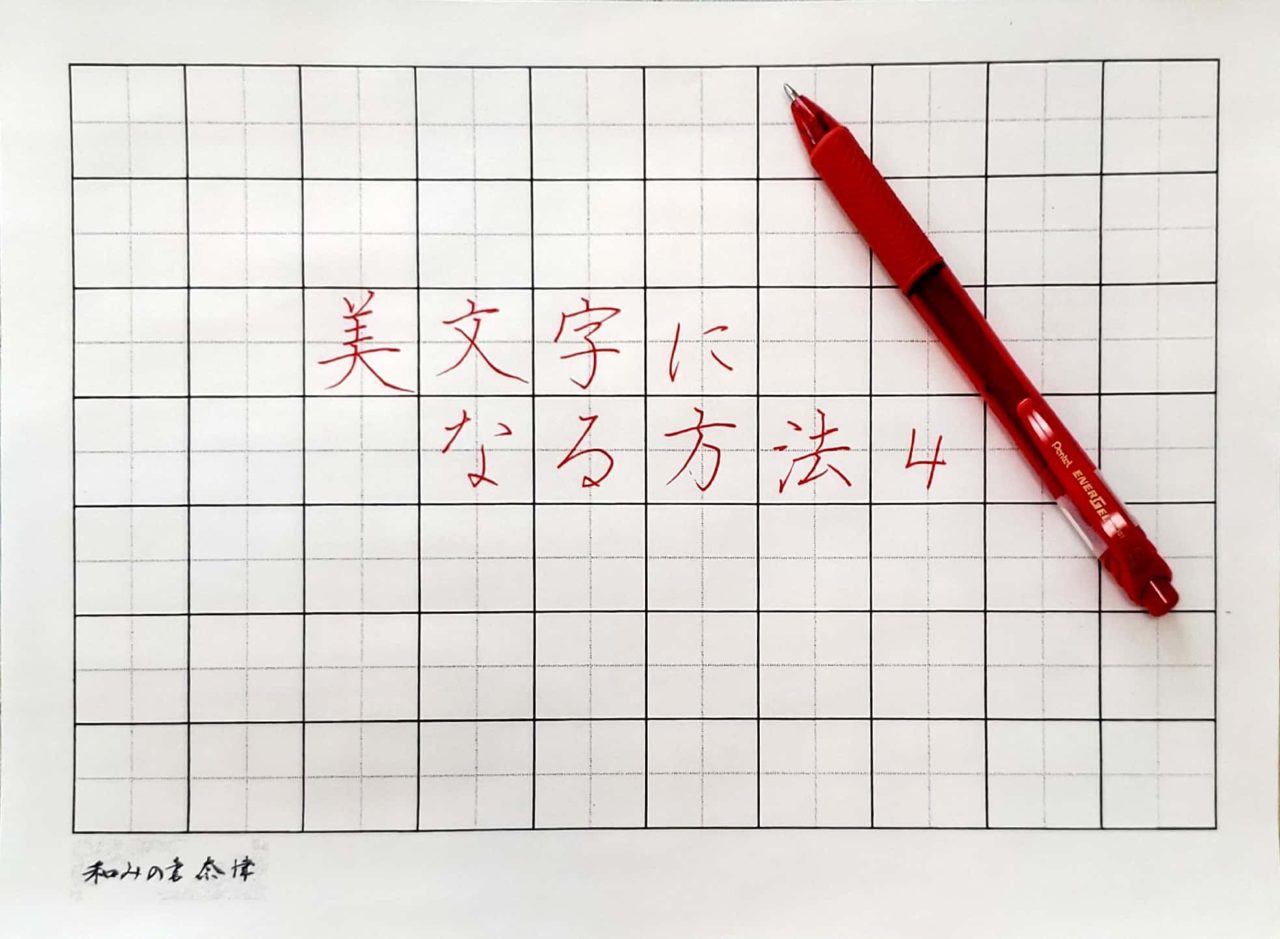 美文字に
なる方法4
Pentel ENERGEL
和みの書